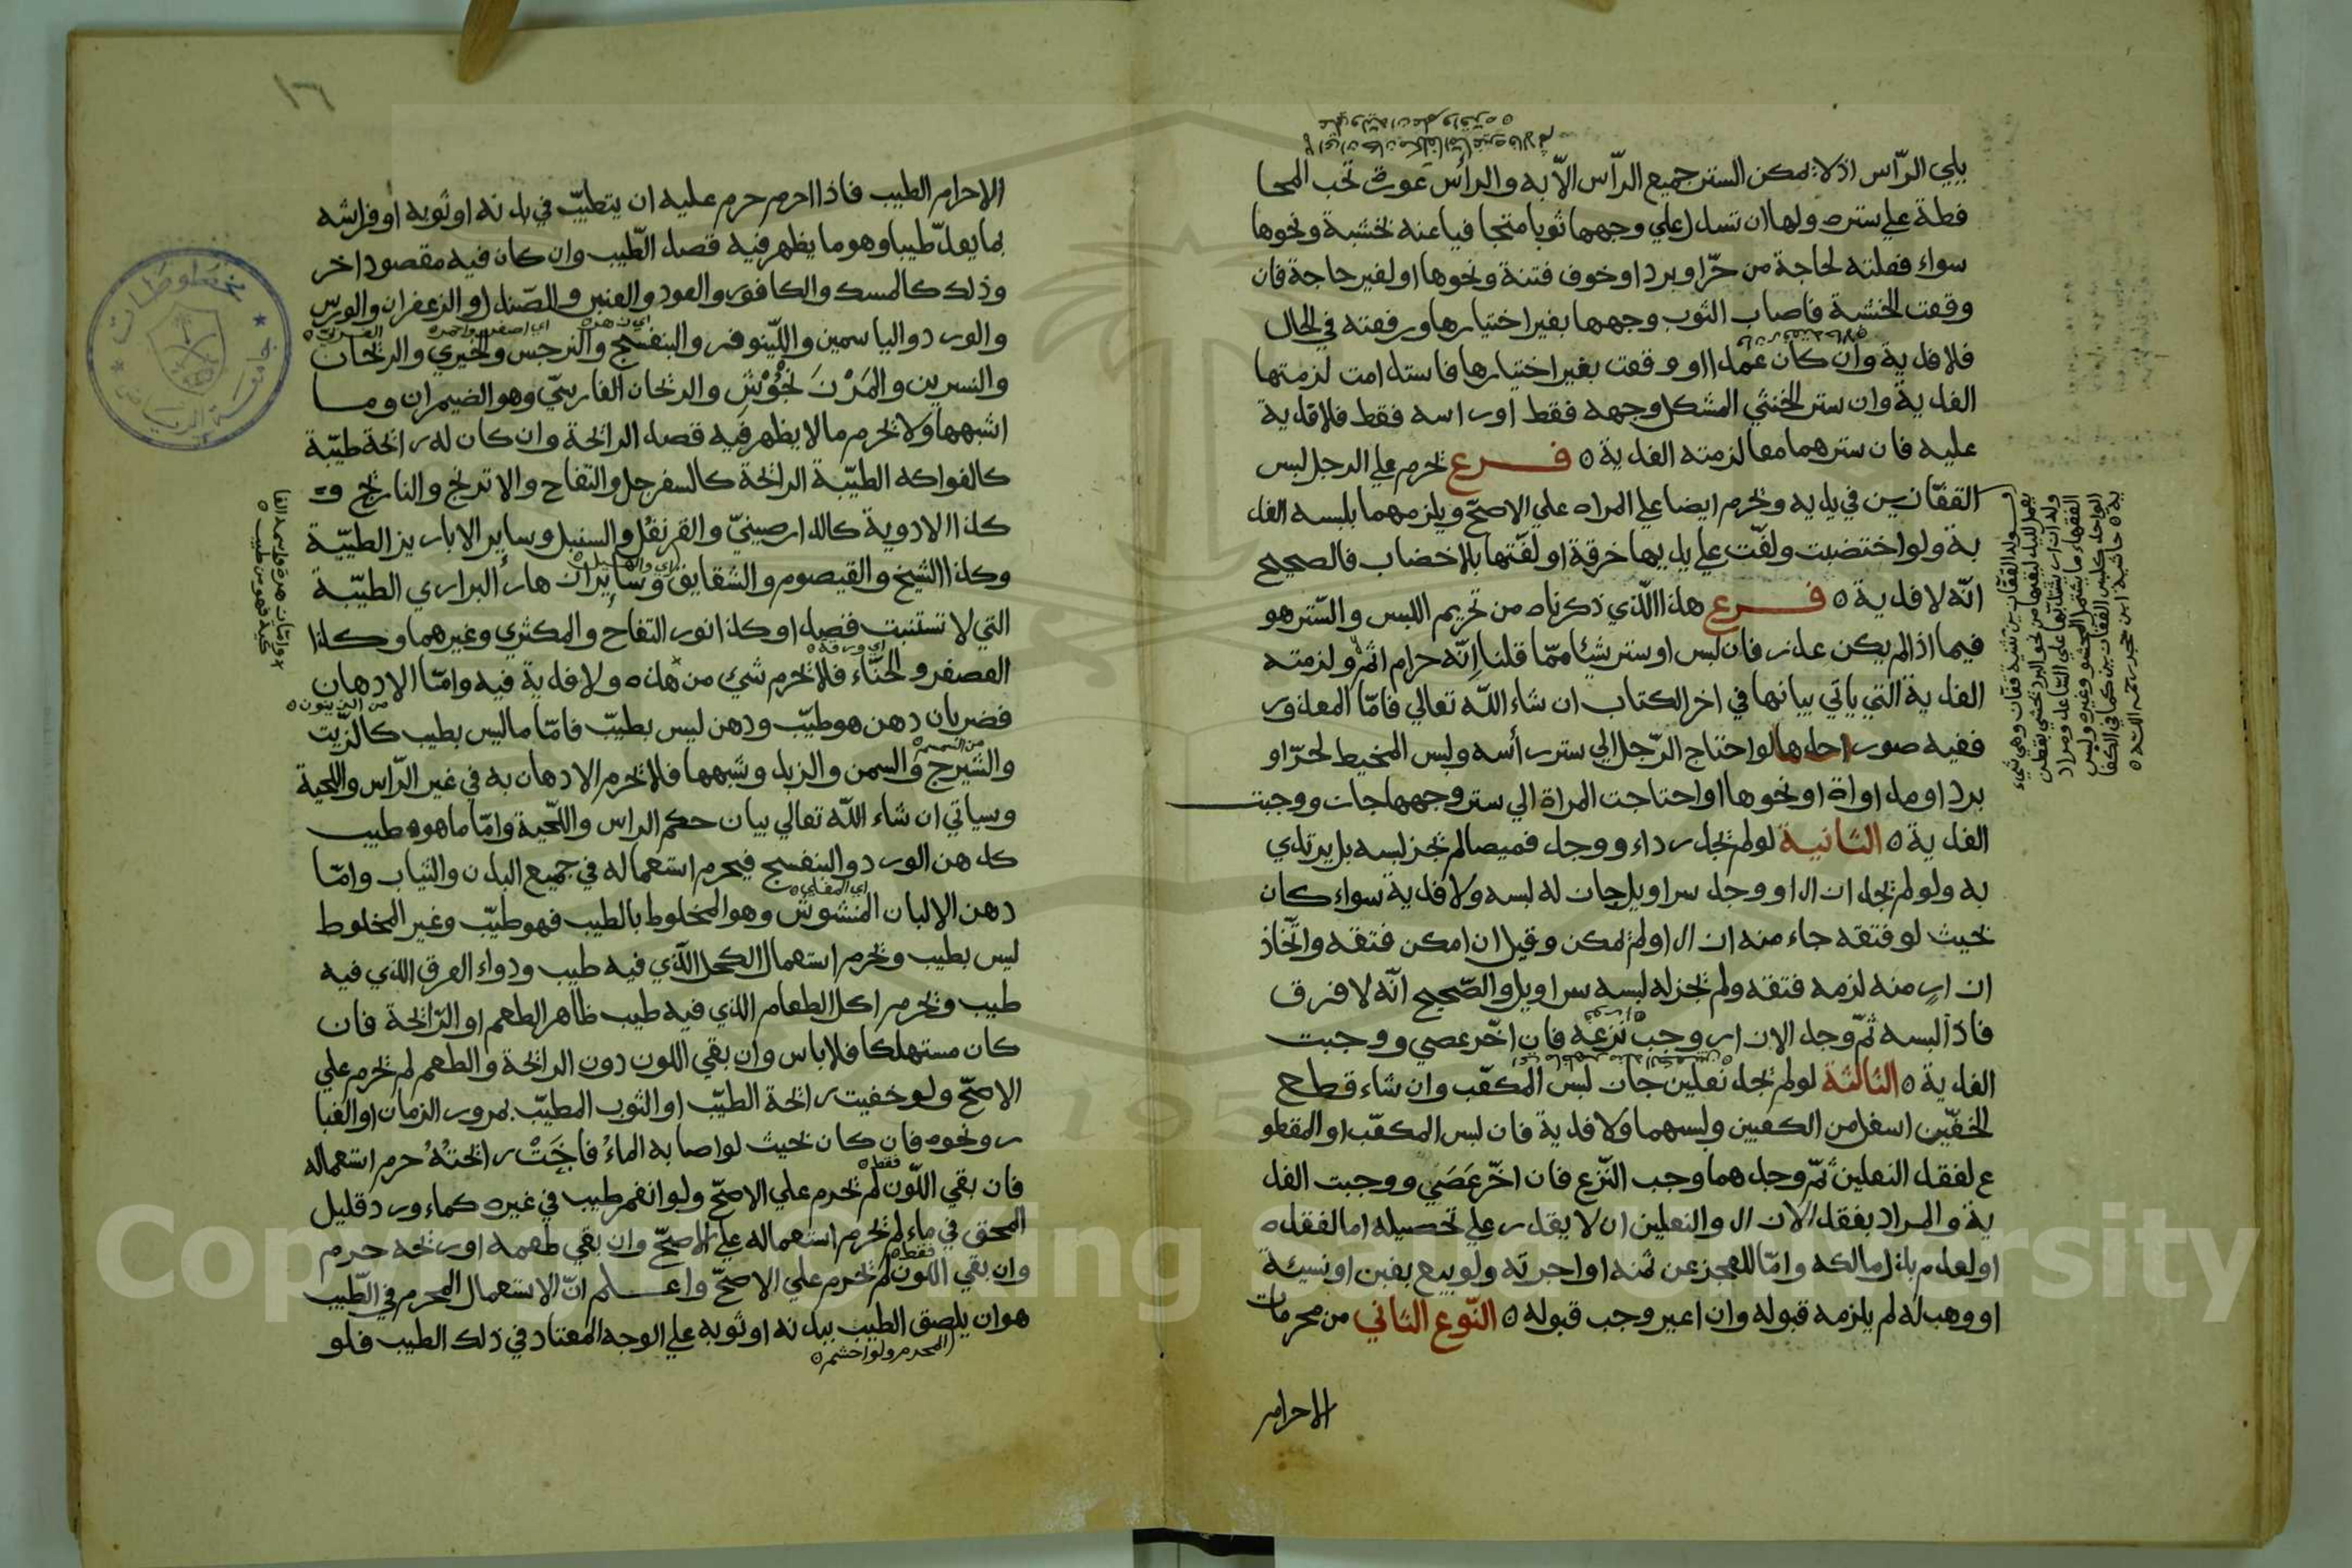 يلي الرّأس اذ لا يمكن الستر جميع الرّأس الّا به والرأس عورة تجب المحا
فظة علي ستره ولها ان تسدل علي وجهها ثوبا متجافيا عنه بخشبة ونحوها
سواء فعلته لحاجة من حرّ او برد او خوف فتنة ونحوها او لغير حاجة فان
وقعت الخشبة فاصاب الثوب وجهها بغير اختيارها ورفعته في الحال
فلا فدية وان كان عمدا او وقعت بغير اختيارها فاستدامت لزمتها
الفدية وان ستر الخنثي المشكل وجهه فقط او راسه فقط فلا فدية
عليه فان سترهما معا لزمته الفدية ٥ فرع يحرم علي الرجل لبس
القفّازين في يديه ويحرم ايضا علي المراه علي الاصحّ ويلزمهما بلبسه الفد
ية ولو اختضبت ولفّت علي يديها خرقة او لفّتها بلا خضاب فالصحيح
انّه لا فدية ٥ فرع هذا الّذي ذكرناه من تحريم اللبس والسّتر هو
فيما اذا لم يكن عذر فان لبس او ستر شيئا ممّا قلنا إنّه حرام اثم ولزمته
الفدية التي ياتي بيانها في اخر الكتاب ان شاء اللّه تعالي فامّا المعذور
ففيه صور احدها لو احتاج الرّجل الي ستر رأسه ولبس المخيط لحرّ او
برد او مداواة او نحوها او احتاجت المراة الي ستر وجهها جاز ووجبت
الفدية ٥ الثانية لو لم يجد رداء ووجد قميصا لم يجز لبسه بل يرتدي
به ولو لم يجد ازارا ووجد سراويل جاز له لبسه ولا فدية سواء كان
بحيث لو فتقه جاء منه ازار او لم يمكن وقيل ان امكن فتقه واتّخاذ
ازار منه لزمه فتقه ولم يجز له لبسه سراويل والصّحيح انّه لا فرق
فاذا لبسه ثمّ وجد الازار وجب نزعه فان اخّر عصي ووجبت
الفدية ٥ الثالثة لو لم يجد نعلين جاز لبس المكعّب وان شاء قطع
الخفّين اسفل من الكعبين ولبسهما ولا فدية فان لبس المكعّب او المقطو
ع لفقد النعلين ثمّ وجدهما وجب النّزع فان اخّر عَصَي ووجبت الفد
ية والمراد بفقد الازار والنعلين ان لا يقدر علي تحصيله اما لفقده
او لعدم بذل مالكه وامّا للعجز عن ثمنه او اجرته ولو بيع بغبن او نسيئة
او وهب له لم يلزمه قبوله وان اعير وجب قبوله ٥ النّوع الثاني من محرمات
الاحرام
١٦
الاحرام الطيب فاذا احرم حرم عليه ان يتطيّب في بدنه او ثوبه او فراشه
بما يعدّ طيبا وهو ما يظهر فيه قصد الطّيب وان كان فيه مقصود اخر
وذلك كالمسك والكافور والعود والعنبر والصّندل والزعفران والورس
والورد والياسمين واللّينوفر والبنفسج والنرجس والخيري والريحان
والنسرين والمَرْزَنجُوْش والريحان الفارسيّ وهو الضيمران وما
اشبهها ولا يحرم ما لا يظهر فيه قصد الرائحة وان كان له رائحة طيّبة
كالفواكه الطيّبة الرائحة كالسفرجل والتفاح والاترنج والنارنج و
كذا الادوية كالدارصينيّ والقرنفُل والسنبل وساير الابازير الطيّبة
وكذا الشيخ والقيصوم والشقايق وساير ازهار البراري الطيّبة
التي لا تستنبت قصدا وكذا نور التفاح والمكثري وغيرهما وكذا
العصفر والحنّاء فلا يحرم شي من هذه ولا فدية فيه وامّا الادهان
فضربان دهن هو طيّب ودهن ليس بطيّب فامّا ما ليس بطيب كالزّيت
والشيرج والسمن والزبد وشبهها فلا يحرم الادهان به في غير الرّاس واللحية
وسياتي ان شاء اللّه تعالي بيان حكم الراس واللّحية وامّا ما هو طيب
كدهن الورد والبنفسج فيحرم استعماله في جميع البدن والثياب وامّا
دهن الالبان المنشوش وهو المخلوط بالطيب فهو طيّب وغير المخلوط
ليس بطيب ويحرم استعمال الكحل الّذي فيه طيب ودواء العرق الذي فيه
طيب ويحرم اكل الطعام الذي فيه طيب ظاهر الطعم او الرّائحة فان
كان مستهلكا فلا باس وان بقي اللون دون الرائحة والطعم لم يحرم علي
الاصحّ ولو خفيت رائحة الطيّب او الثوب المطيّب بمرور الزمان او الغبا
ر ونحوه فان كان بحيث لو اصابه الماءُ فاحَتْ رائحتُهُ حرم استعماله
فان بقي اللّون لم يحرم علي الاصحّ ولو انغمر طيب في غيره كماء ورد قليل
المحق في ماء لم يحرم استعماله علي الاصحّ وان بقي طعمه او ريحه حرم
وان بقي اللّون لم يحرم علي الاصحّ واعلم انّ الاستعمال المحرم في الطّيب
هو ان يلصق الطيب ببدنه او ثوبه علي الوجه المعتاد في ذلك الطيب فلو
المحرم ولو احشم ٥
جامعة الرياض
مخطوطات
Copyright © King Saud University
195